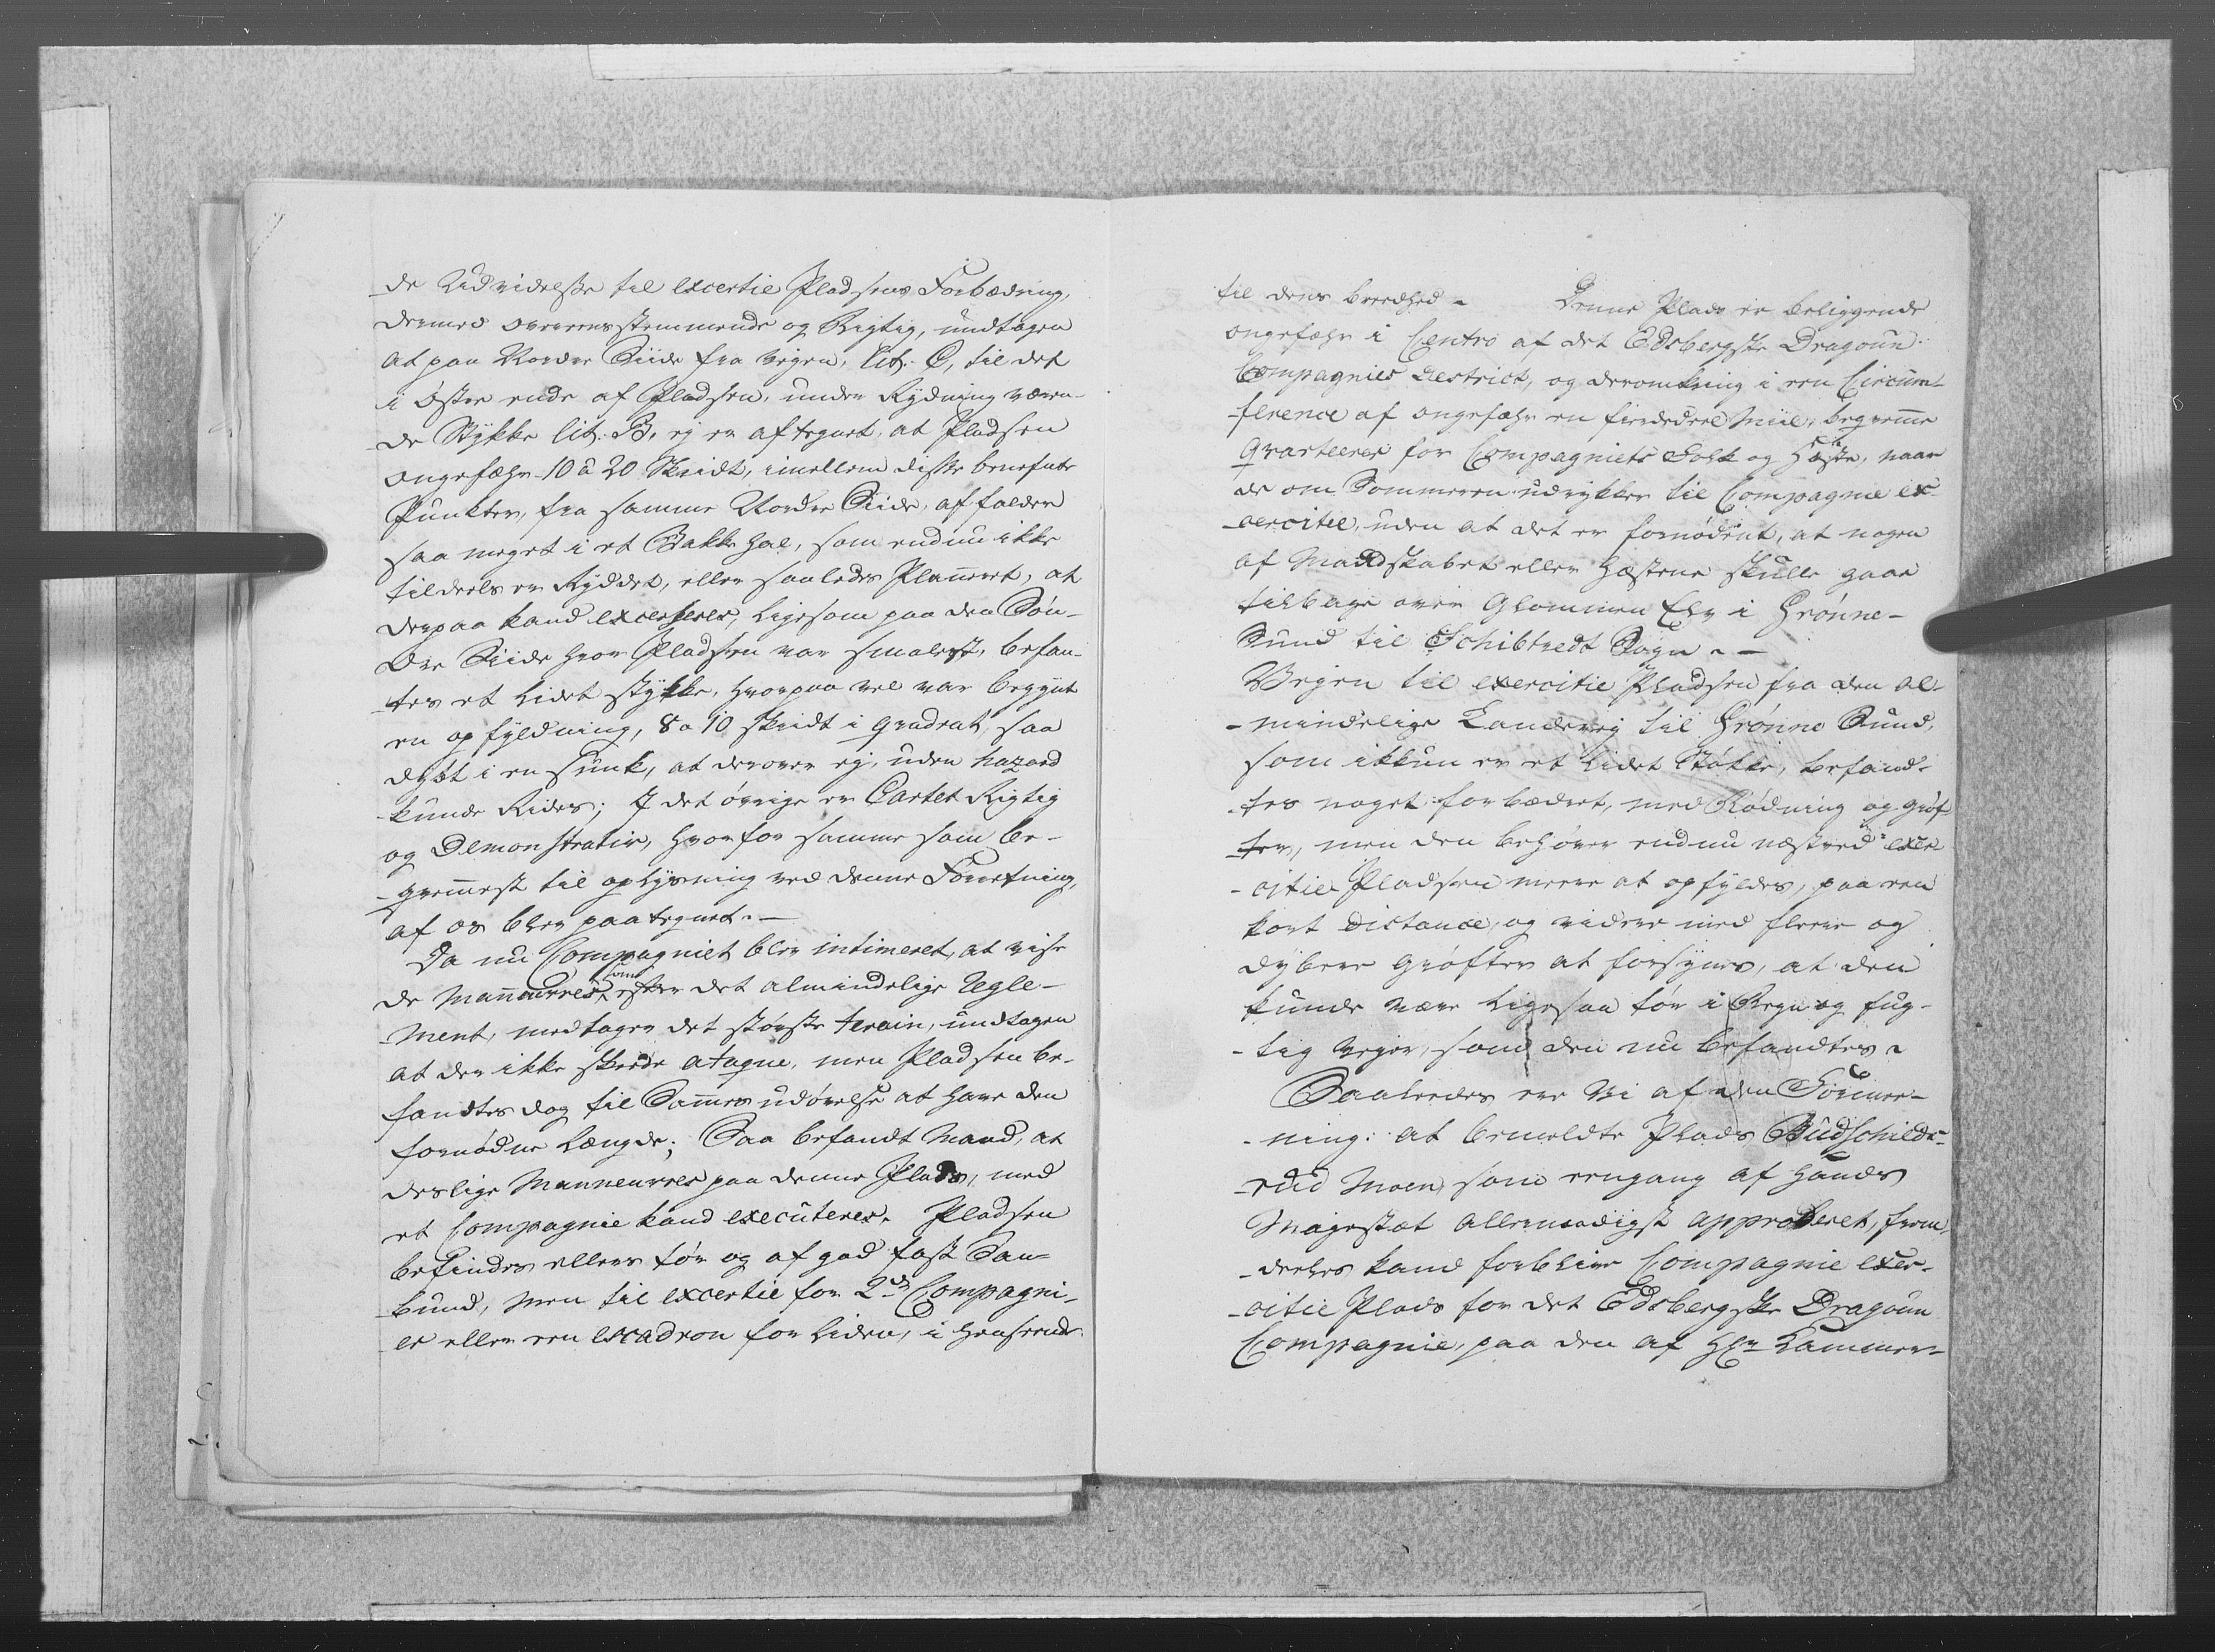 de Udvidelse til excertie Pladsens Forbædring,
dermed overeensstemmende og Rigtig, undtagen
at paa Nordre Siide fra veyen, lit. C, til det
i Øster ende af Pladsen, under Rydning væren-
de Stykke lit. B, ej er aftegnet, at Pladsen
ongefæhr 10 à 20 Skridt, imellem disse benefnte
Punkter, fra samme Nordre Siide, affalder
saa meget i et Bakke Hal, som endnu ikke
tildeels er Ryddet, eller saaledes Planneret, at
derpaa kand excerseres, ligesom paa den Søn-
dre Siide hvor Pladsen var smalest, befan-
tes et lidet stykke, hvorpaa vel var begynt
en opfyldning, 8 a 10 skridt i qvadrat, saa
dybt i en sunk, at derover ej, uden hazard
kunde Rides; I det øvrige er Cartet Rigtig
og Demonstrativ, hvorfor samme som be-
qvemmest til oplysning ved denne Forretning,
af os blev paategnet.
Da nu Compagniet blev intimeret, at vise
de Manneuvres, som efter det almindelige Regle-
ment, medtager det største terain, undtagen
at der ikke skeede ataque, men Pladsen be-
fandtes dog til Sammes udøvelse at have den
fornødne Længde; Saa befandt Mand, at
deslige Manneuvres paa denne Plads, med
et Compagnie kand executeres. Pladsen
befindes ellers tør og af god fast San-
bund, men til excertie for 2de Compagni-
er eller een escadron for liden, i henseende
til dens breedhed. Denne Plads er beliggende
ongefæhr i Centro af det Edsbergske Dragoun
Compagnies Destrict, og deromkring i een Circum-
ference af ongefæhr en fierdedeel Miil, beqvemme
Qvarteerer for Compagniets Folk og Heste, naar
de om Sommeren udrykker til Compagnie ex-
cercitie, uden at det er fornødent, at nogen
af Mandskabet eller Hæstene skulle gaae
tilbage over Glommen Elv i Grønne-
Sund til Schibtvedt Sogn.
Veyen til exercitie Pladsen fra den al-
mindelige Landevej til Grønne Sund,
som ikkun er et lidet Støkke, befand-
tes noget forbædret, med Rødning og grøf-
ter, men den behøver endnu næstved exer-
citie Pladsen meere at opfyldes, paa een
kort Distance, og videre med fleere og
dybere Grøfter at forsynes, at den
kunde være ligesaa tør i Regn og fug-
tig Veyer, som den nu befandtes.
Saaleedes ere Vi af den Formee-
ning: at bemeldte Plads Budschilds-
rud Moen, som eengang af Hands
Mayestæt Allernaadigst approberet, frem-
deeles kand forblive Compagnie exer-
citie Plads for det Edsbergske Dragoun
Compagnie, paa den af Hr Kammer-